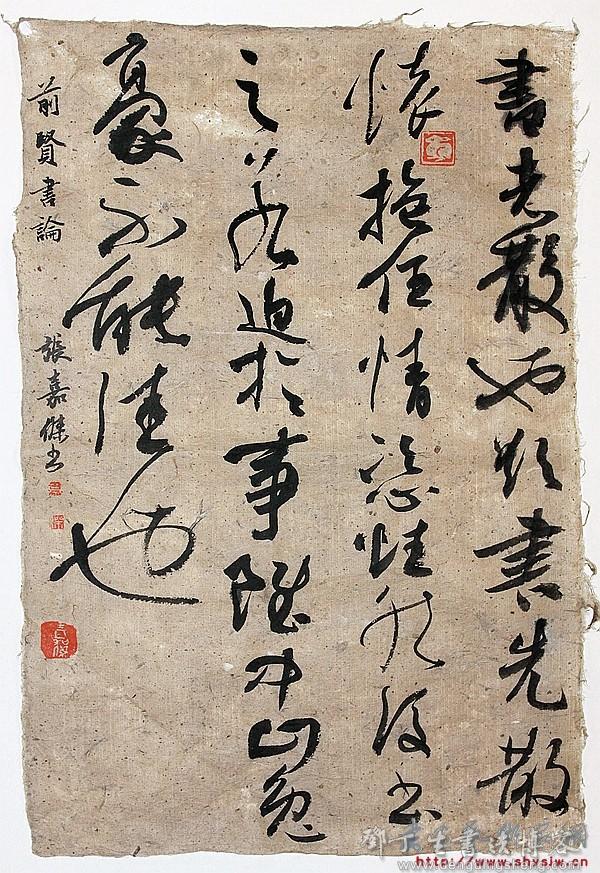 書者散也欲書先散
懷抱任情恣性然後書
之若迫於事雖中山兔
豪不能佳也
前賢書論
張嘉傑書
http://www.shxsjw.cn